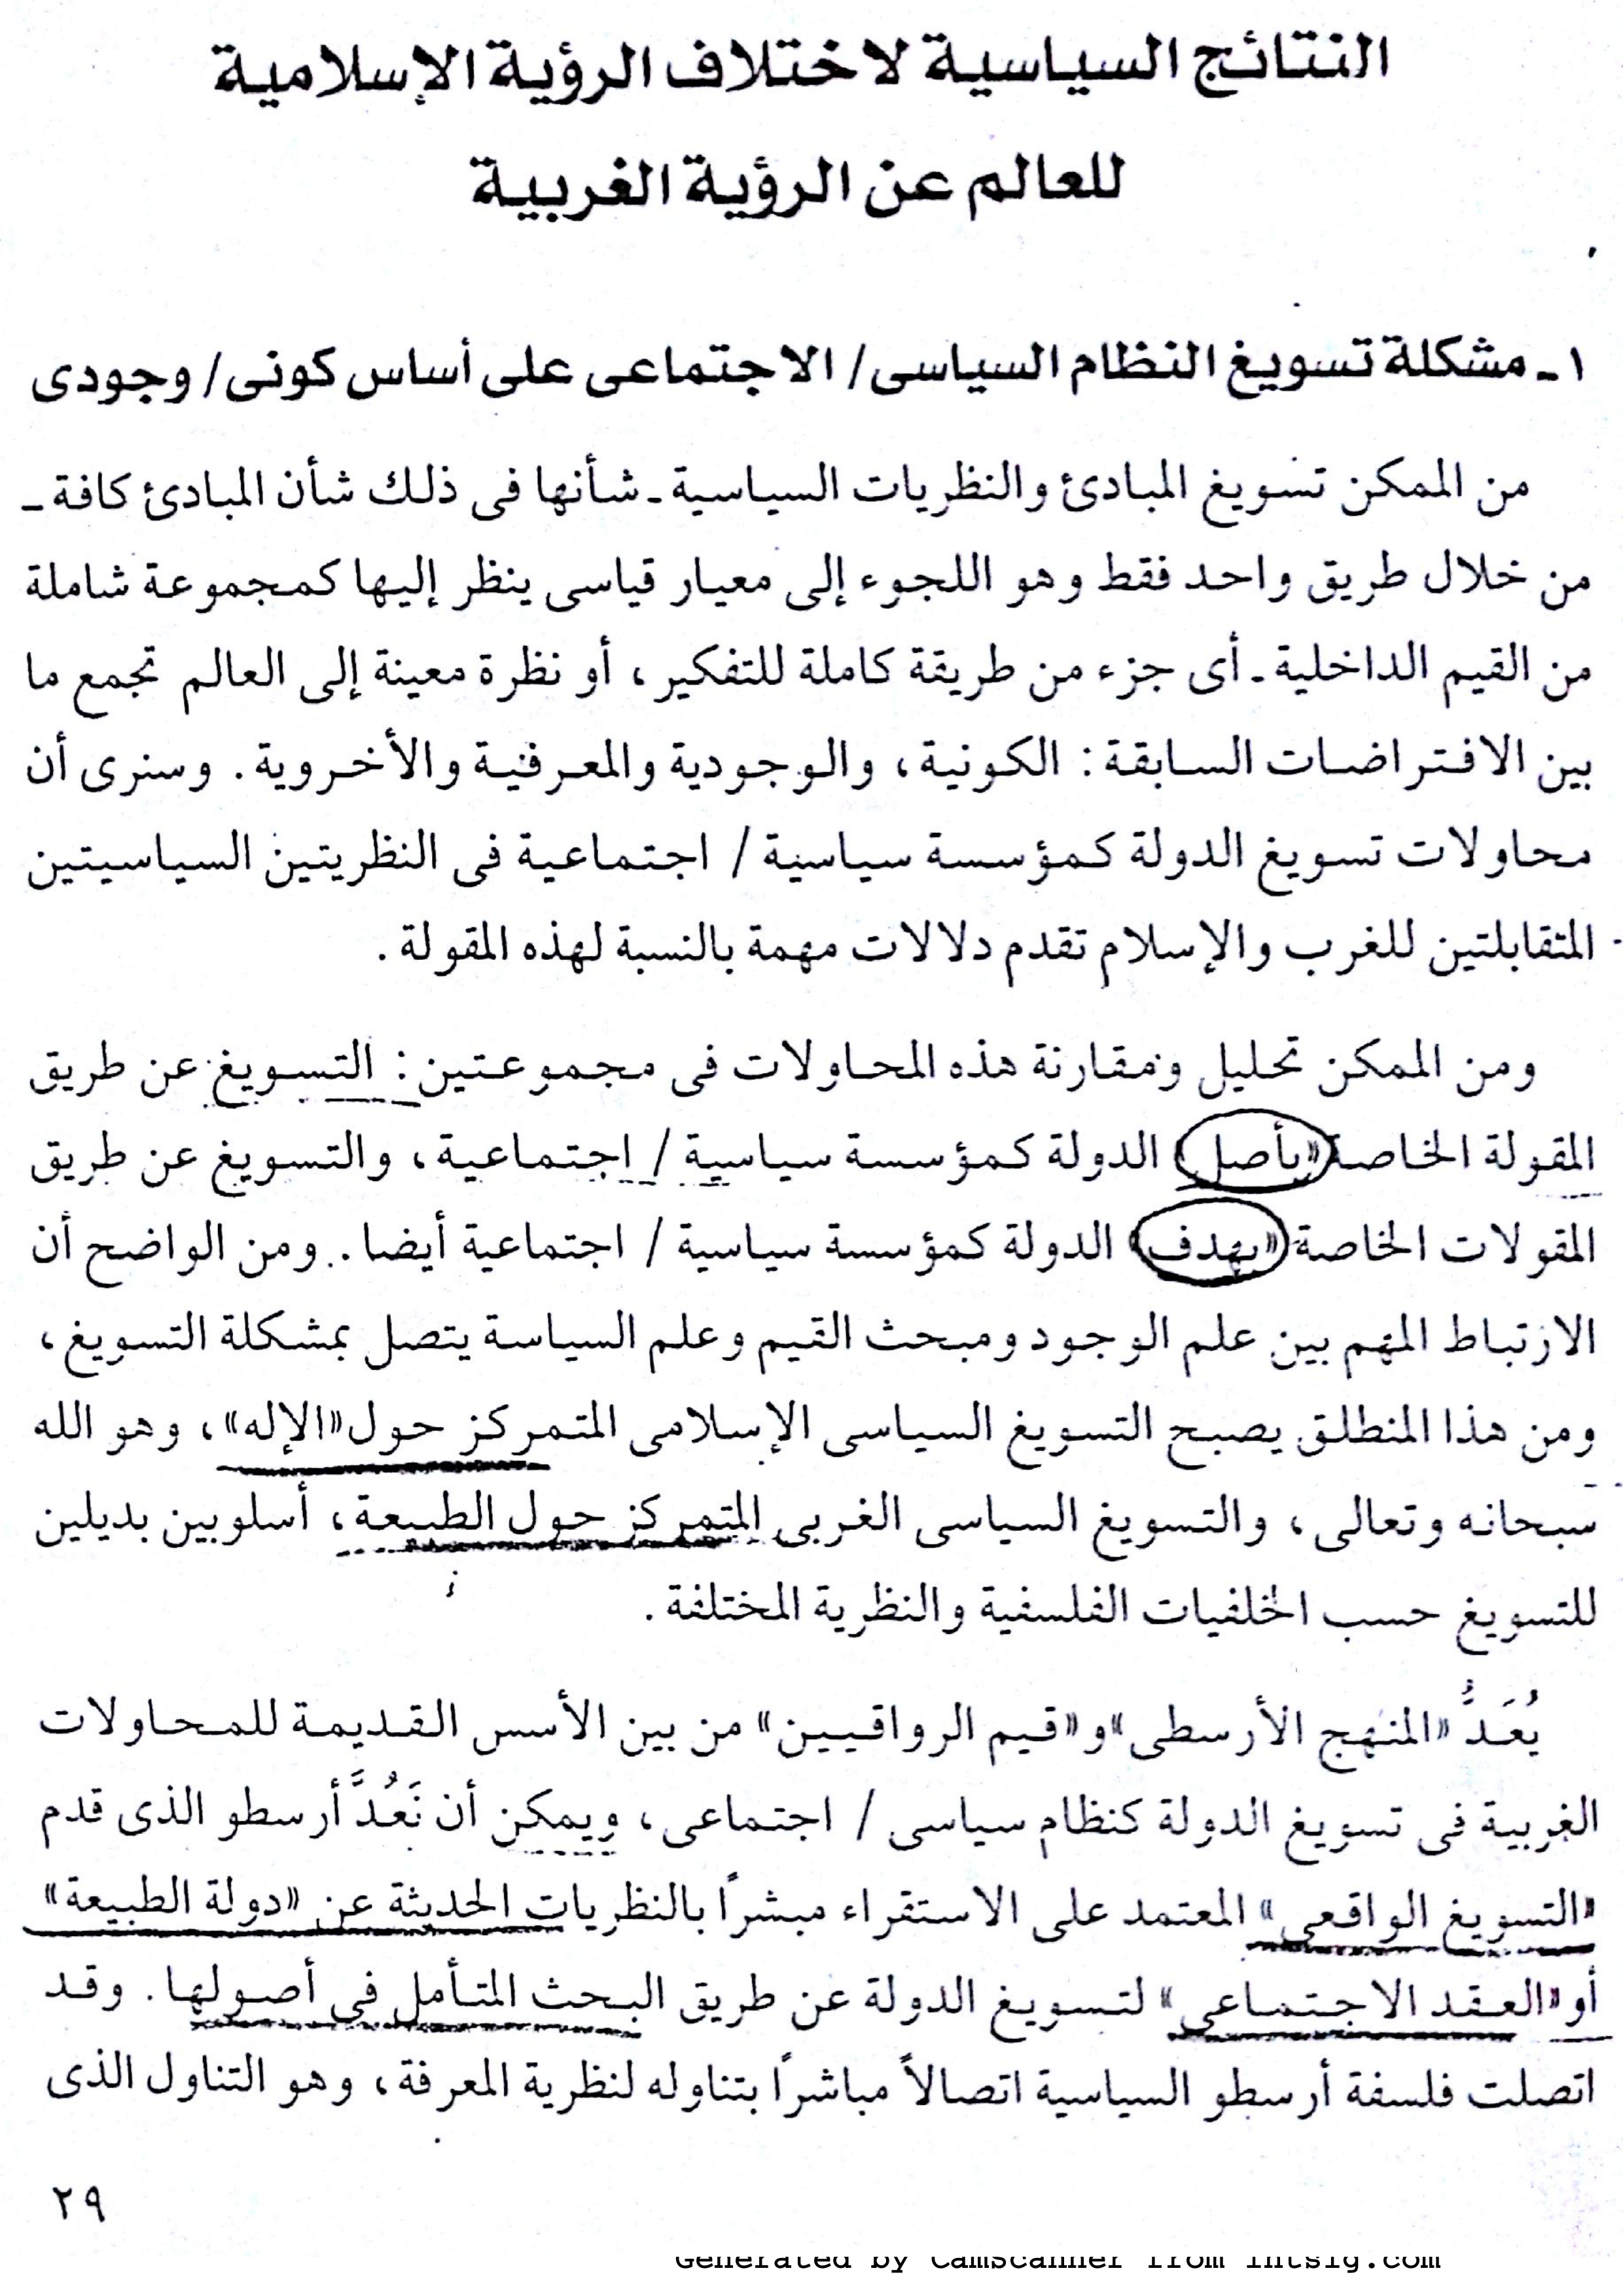 النتائج السياسية لاختلاف الرؤية الإسلامية
للعالم عن الرؤية الغربية
١ ـ مشكلة تسويغ النظام السياسى/ الاجتماعى على أساس كونى/ وجودى
من الممكن تسويغ المبادئ والنظريات السياسية ـ شأنها فى ذلك شأن المبادئ كافة ـ
من خلال طريق واحد فقط وهو اللجوء إلى معيار قياسى ينظر إليها كمجموعة شاملة
من القيم الداخلية ـ أى جزء من طريقة كاملة للتفكير، أو نظرة معينة إلى العالم تجمع ما
بين الافتراضات السابقة: الكونية، والوجودية والمعرفية والأخروية. وسنرى أن
محاولات تسويغ الدولة كمؤسسة سياسية / اجتماعية فى النظريتين السياسيتين
المتقابلتين للغرب والإسلام تقدم دلالات مهمة بالنسبة لهذه المقولة.
ومن الممكن تحليل ومقارنة هذه المحاولات فى مجموعتين: التسويغ عن طريق
المقولة الخاصة «بأصل» الدولة كمؤسسة سياسية / اجتماعية، والتسويغ عن طريق
المقولات الخاصة «بهدف» الدولة كمؤسسة سياسية / اجتماعية أيضا. ومن الواضح أن
الارتباط المهم بين علم الوجود ومبحث القيم وعلم السياسة يتصل بمشكلة التسويغ،
ومن هذا المنطلق يصبح التسويغ السياسى الإسلامى المتمركز حول «الإله»، وهو الله
سبحانه وتعالى، والتسويغ السياسى الغربى المتمركز حول الطبيعة، أسلوبين بديلين
للتسويغ حسب الخلفيات الفلسفية والنظرية المختلفة.
يُعَدُّ «المنهج الأرسطى» و«قيم الرواقيين» من بين الأسس القديمة للمحاولات
الغربية فى تسويغ الدولة كنظام سياسى / اجتماعى، ويمكن أن نَعُدَّ أرسطو الذى قدم
«التسويغ الواقعى» المعتمد على الاستقراء مبشرًا بالنظريات الحديثة عن «دولة الطبيعة»
أو «العقد الاجتماعى» لتسويغ الدولة عن طريق البحث المتأمل فى أصولها. وقد
اتصلت فلسفة أرسطو السياسية اتصالاً مباشرًا بتناوله لنظرية المعرفة، وهو التناول الذى
٢٩
Generated by CamScanner from intsig.com